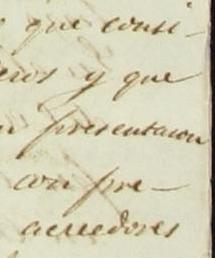 que consi-
eros y que
n presentaron
con pre-
acreedores